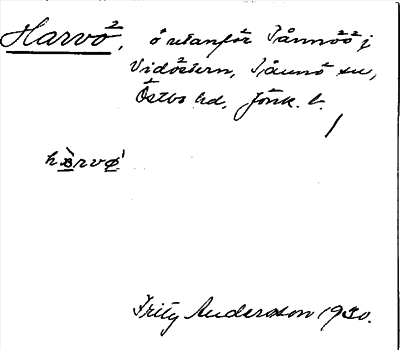 Harvö, ö utanför Tånnöö i
Vidöstern, Tånnö sn,
Östbo hd, Jönk. l.
Fritz Anderson 1930.